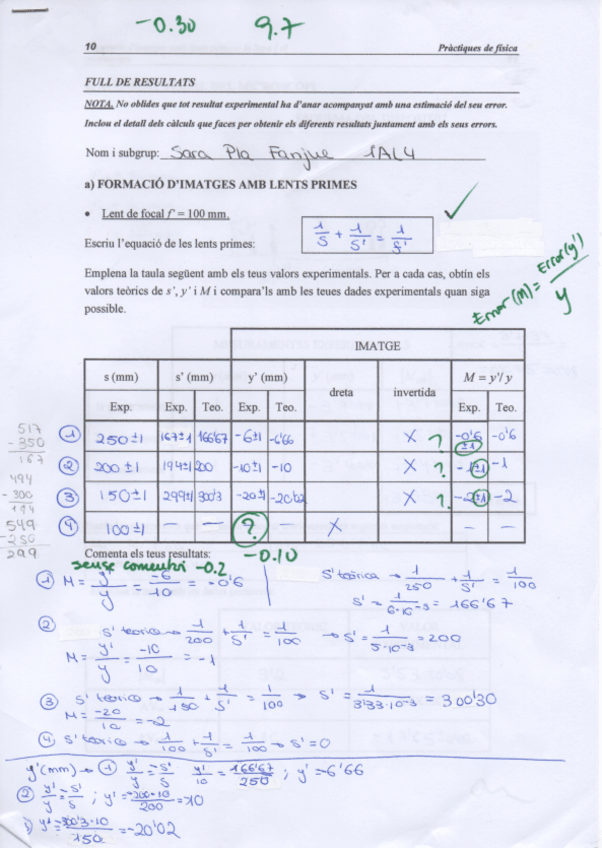 -0.30 9.7
10 Pràctiques de física
FULL DE RESULTATS
NOTA. No oblides que tot resultat experimental ha d'anar acompanyat amb una estimació del seu error.
Inclou el detall dels càlculs que faces per obtenir els diferents resultats juntament amb els seus errors.
Nom i subgrup: Sara Pla Fanjue 1AL4
a) FORMACIÓ D'IMATGES AMB LENTS PRIMES
• Lent de focal f' = 100 mm.
Escriu l'equació de les lents primes: 1/S + 1/S' = 1/f'
Emplena la taula següent amb els teus valors experimentals. Per a cada cas, obtín els
valors teòrics de s', y' i M i compara'ls amb les teues dades experimentals quan siga
possible.
Error(M) = Error(y')/y
IMATGE
s (mm) s' (mm) y' (mm) dreta invertida M = y'/y
Exp. Exp. Teo. Exp. Teo. Exp. Teo.
1 250±1 167±1 166'67 -6±1 -6'66 X ? -0'6 ±1 -0'6
2 200±1 194±1 200 -10±1 -10 X ? -1±1 -1
3 150±1 299±1 300'3 -20±1 -20'02 X ? -2±1 -2
4 100±1 - - ? - X - -
517
-350
167
494
-300
194
549
-250
299
Comenta els teus resultats: -0.10
sense comentri -0.2
1 M = y'/y = -6/10 = -0'6 S' teòrica → 1/250 + 1/S' = 1/100
S' = 1/6·10-3 = 166'67
2 S' teorico → 1/200 + 1/S' = 1/100 → S' = 1/5·10-3 = 200
M = y'/y = -10/10 = -1
3 S' teorico → 1/150 + 1/S' = 1/100 → S' = 1/3'33·10-3 = 300'30
M = -20/10 = -2
4 S' teorico → 1/100 + 1/S' = 1/100 → S' = 0
y'(mm) → 1 y'/y = S'/S y'/10 = 166'67/250 ; y' = -6'66
2 y'/y = S'/S ; y' = -200·10/200 = -10
3 y' = -300'3·10/150 = -20'02